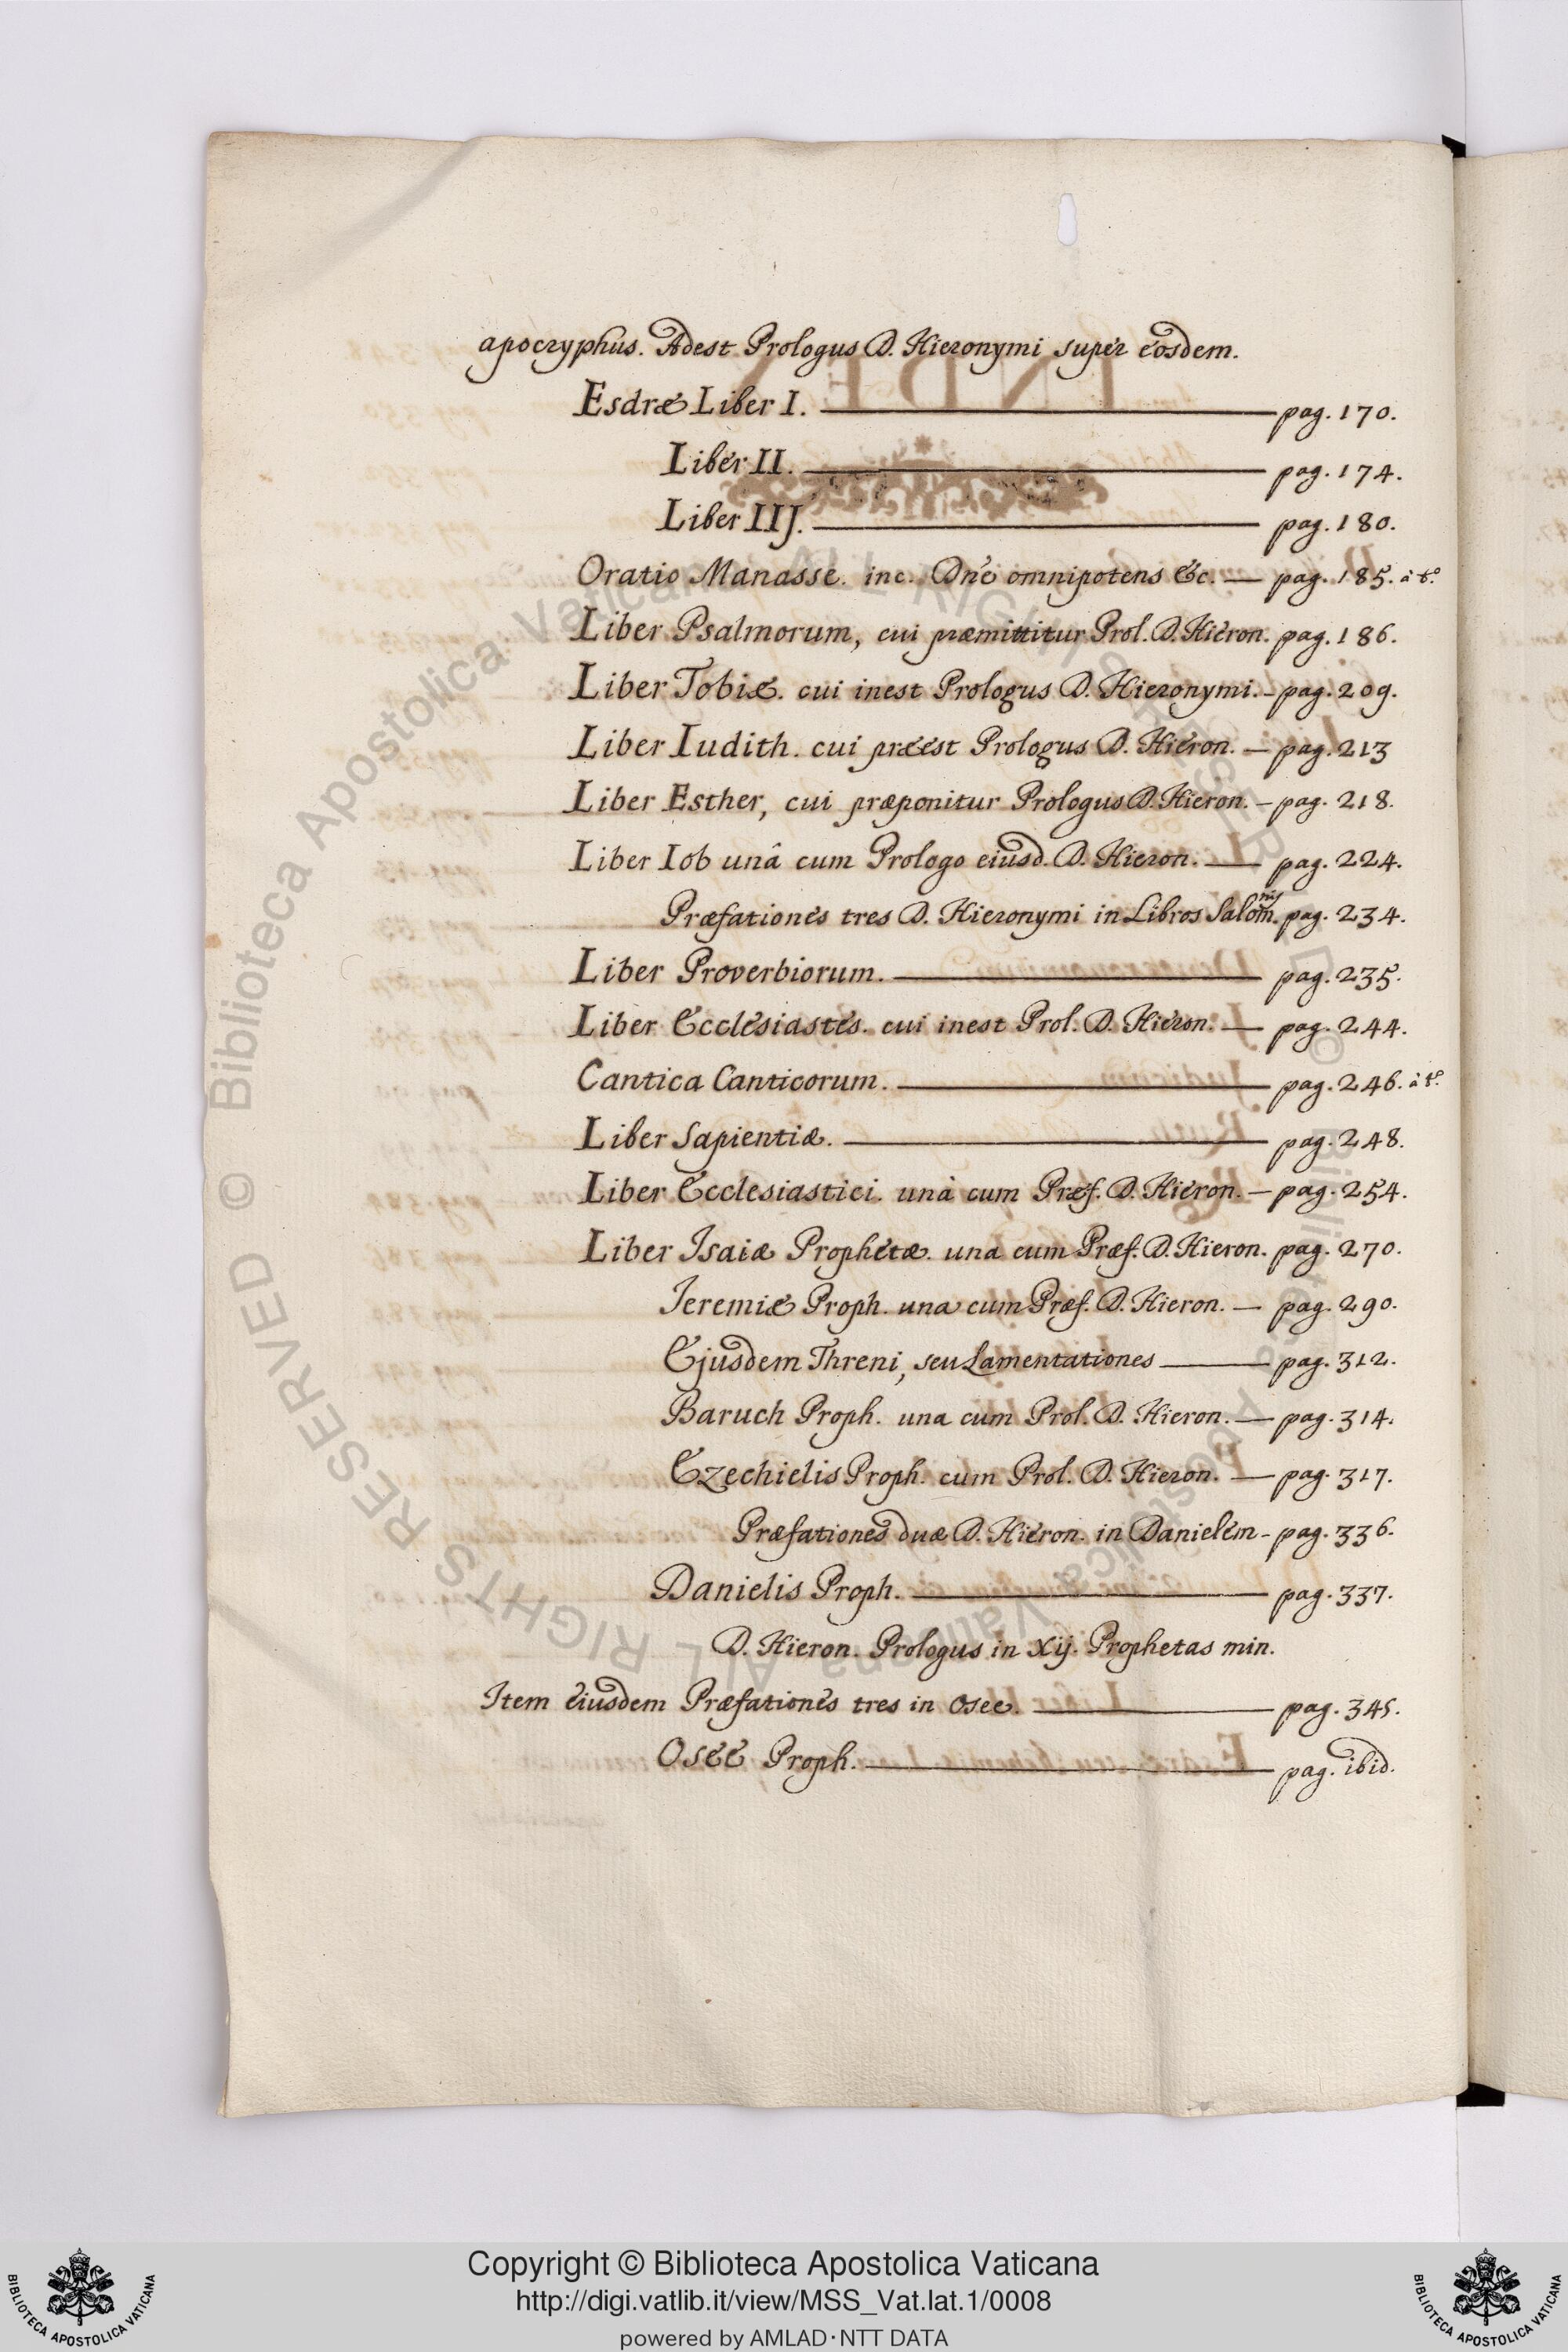 apocryphus. Adest Prologus D. Hieronymi super eosdem.
Esdræ Liber I. pag. 170.
Liber II. pag. 174.
Liber IIJ. pag. 180.
Oratio Manasse. inc. Dn̄e omnipotens &c. pag. 185. à t.º
Liber Psalmorum, cui præmittitur Prol. D. Hieron. pag. 186.
Liber Tobiæ. cui inest Prologus D. Hieronymi. pag. 209.
Liber Iudith. cui præest Prologus D. Hieron. pag. 213
Liber Esther, cui præponitur Prologus D. Hieron. pag. 218.
Liber Iob unâ cum Prologo eiusd. D. Hieron. pag. 224.
Præfationes tres D. Hieronymi in Libros Salom.nis pag. 234.
Liber Proverbiorum. pag. 235.
Liber Ecclesiastes. cui inest Prol. D. Hieron. pag. 244.
Cantica Canticorum. pag. 246. à t.º
Liber Sapientiæ. pag. 248.
Liber Ecclesiastici. unà cum Præf. D. Hieron. pag. 254.
Liber Isaiæ Prophetæ. una cum Præf. D. Hieron. pag. 270.
Jeremiæ Proph. una cum Præf. D. Hieron. pag. 290.
Ejusdem Threni, seu Lamentationes pag. 312.
Baruch Proph. una cum Prol. D. Hieron. pag. 314.
Ezechielis Proph. cum Prol. D. Hieron. pag. 317.
Præfationes duæ D. Hieron. in Danielem pag. 336.
Danielis Proph. pag. 337.
D. Hieron. Prologus in xij. Prophetas min.
Item eiusdem Præfationes tres in Osee. pag. 345.
Osee Proph. pag. ibid.
© Biblioteca Apostolica Vaticana ALL RIGHTS RESERVED © Biblioteca Apostolica Vaticana ALL RIGHTS RESERVED
Copyright © Biblioteca Apostolica Vaticana
http://digi.vatlib.it/view/MSS_Vat.lat.1/0008
powered by AMLAD·NTT DATA
BIBLIOTECA APOSTOLICA VATICANA
BIBLIOTECA APOSTOLICA VATICANA